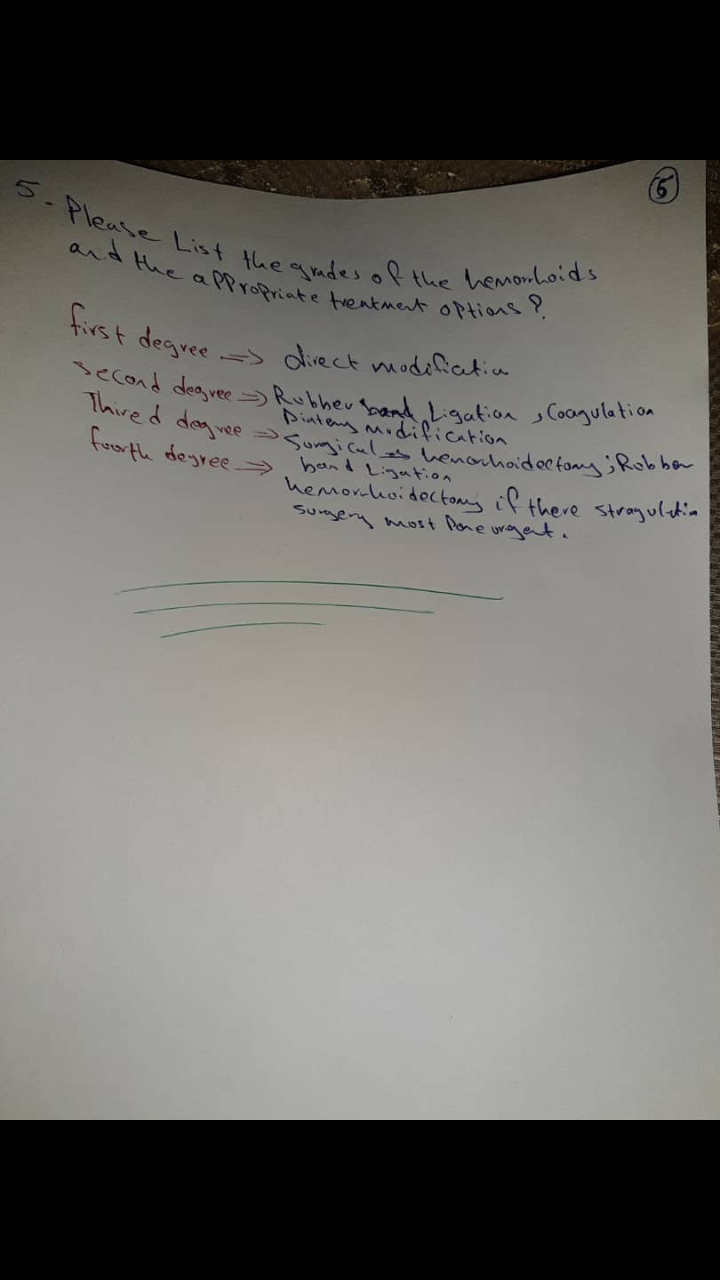 6
5- Please List the grades of the hemorrhoids
and the appropriate treatment options?
first degree => direct modificatin
second degree => Rubber band Ligation, Coagulation
Dintery modification
Thired degree => Surgical -> hemorrhoidectomy; Rubber
band Ligation
fourth degree => hemorrhoidectomy if there stragulatin
surgery most Done urgent.